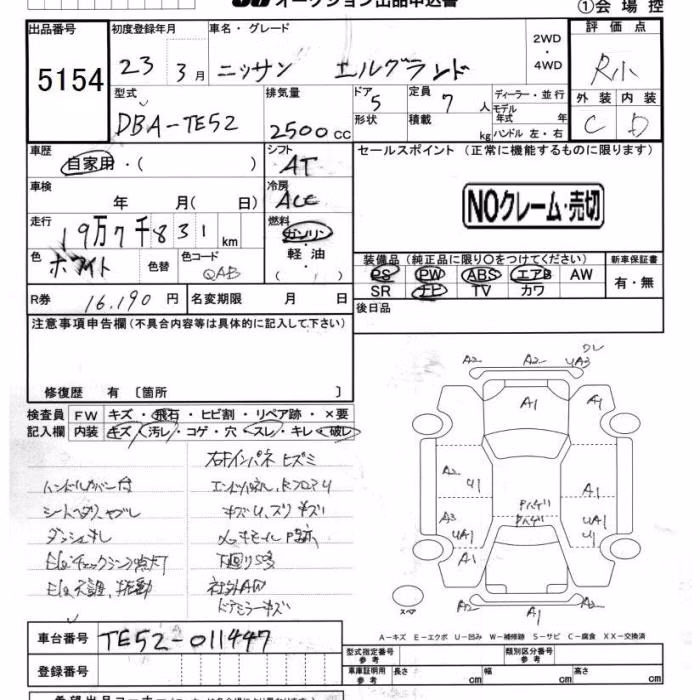 オークション出品申込書
①会場控
出品番号
5154
初度登録年月
23 3月
車名・グレード
ニッサン エルグランド
2WD
・
4WD
評価点
R小
外装 内装
C D
型式
DBA-TE52
排気量
2500cc
ドア 5
形状
定員 7人
積載 kg
ディーラー・並行
モデル年式 年
ハンドル 左・右
車歴
自家用・( )
シフト
AT
セールスポイント (正常に機能するものに限ります)
NOクレーム・売切
車検
年 月( 日)
冷房
AAC
走行
19万7千831km
燃料
ガソリン・
軽油・
( )
色
ホワイト
色替
色コード
QAB
装備品 (純正品に限り○をつけてください)
PS PW ABS エアB AW
SR ナビ TV カワ
新車保証書
有・無
R券 16,190円
名変期限 月 日
後日品
注意事項申告欄(不具合内容等は具体的に記入して下さい)
修復歴 有 〔箇所 〕
検査員
記入欄
FW キズ・飛石・ヒビ割・リペア跡・×要
内装 キズ・汚レ・コゲ・穴・スレ・キレ・破レ
右インパネ ヒズミ
シートヘタリ ヤブレ
キズU、ズリ キズ
下回りS多
社外AW
ドアミラーキズ
A2 A2 UA3
A1 A1
A2 U1 A1
A3 UA1 UA1
U1
A1 A1
A2 A1 A2
スペア
A－キズ E－エクボ U－凹み W－補修跡 S－サビ C－腐食 XX－交換済
車台番号 TE52-011447
登録番号
型式指定番号
参考
類別区分番号
参考
車庫証明用
参考
長さ cm 幅 cm 高さ cm